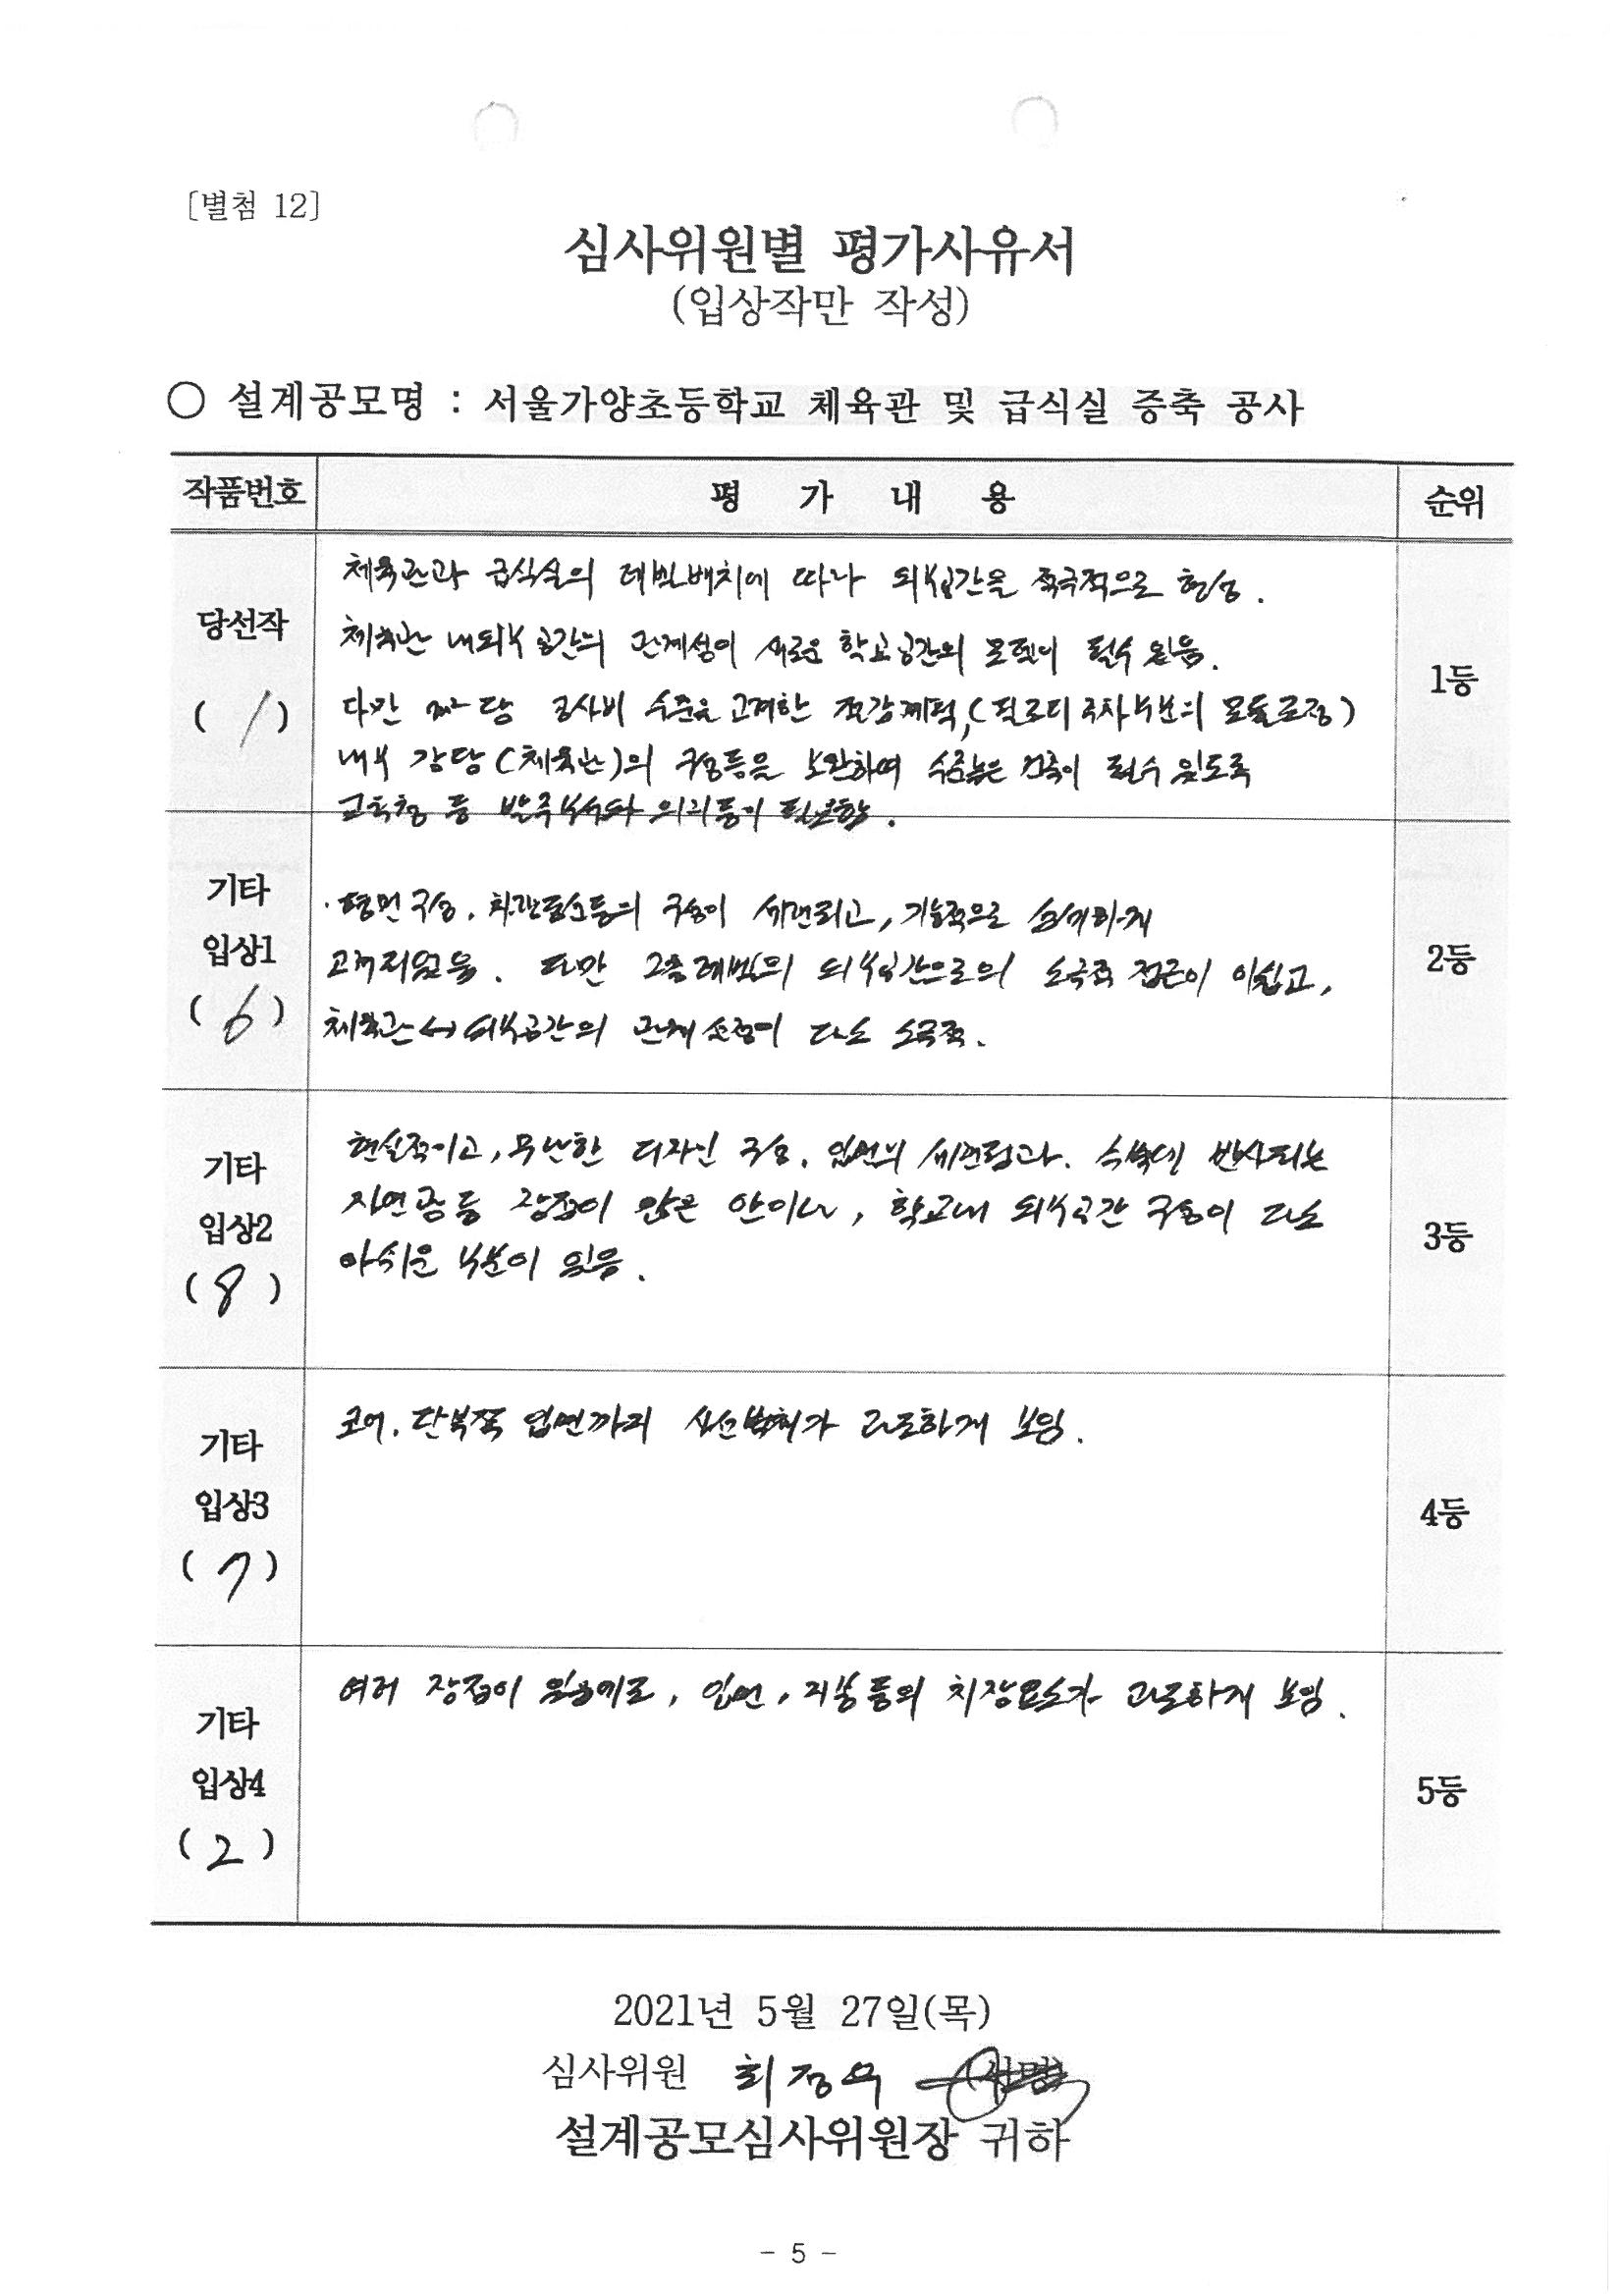 [별첨 12]
심사위원별 평가사유서
(입상작만 작성)
○ 설계공모명 : 서울가양초등학교 체육관 및 급식실 증축 공사
작품번호 평 가 내 용 순위
당선작
( 1 )
체육관과 급식실의 레벨배치에 따라 외부공간을 적극적으로 형성.
체육관 내외부 공간의 관계성이 새로운 학교공간의 모델이 될수 있음.
다만 m² 당 공사비 수준을 고려한 절감계획, (필로티 주차부분의 모듈조정)
내부 강당 (체육관)의 구성등을 보완하여 수준높은 건축이 될수 있도록
교육청 등 발주부서와 의견 등이 필요함.
1등
기타
입상1
( 6 )
· 평면 구성, 차단등의 구성이 세련되고, 기능적으로 섬세하게
고려되었음. 다만 2층레벨의 외부공간으로의 소극적 접근이 아쉽고,
체육관↔외부공간의 관계 설정이 다소 소극적.
2등
기타
입상2
( 8 )
현실적이고, 무난한 디자인 구성. 입면의 세련됨과. 반사되는
자연광 등 장점이 많은 안이나, 학교내 외부공간 구성이 다소
아쉬운 부분이 있음.
3등
기타
입상3
( 7 )
코어. 단복쪽 입면까지 사선 가 과도하게 보임.
4등
기타
입상4
( 2 )
여러 장점이 있음에도, 입면, 지붕 등의 치장요소가 과도하게 보임.
5등
2021년 5월 27일(목)
심사위원 최정우
설계공모심사위원장 귀하
- 5 -